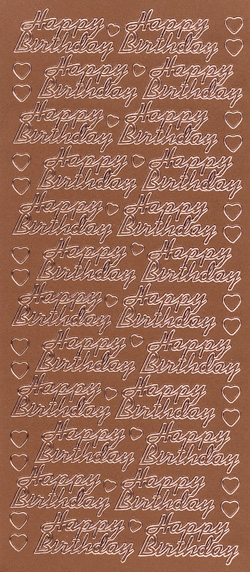 Happy Happy
Birthday Birthday
Happy Happy
Birthday Birthday
Happy Happy
Birthday Birthday
Happy Happy
Birthday Birthday
Happy Happy
Birthday Birthday
Happy Happy
Birthday Birthday
Happy Happy
Birthday Birthday
Happy Happy
Birthday Birthday
Happy Happy
Birthday Birthday
Happy Happy
Birthday Birthday
Happy Happy
Birthday Birthday
Happy Happy
Birthday Birthday